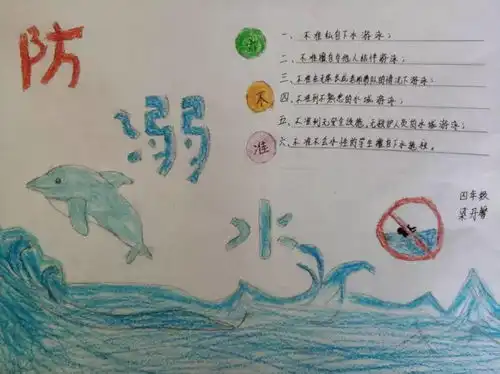 防
溺
水
六
不
准
一、不准私自下水游泳;
二、不准擅自与他人结伴游泳;
三、不准在无家长或老师带队的情况下游泳;
四、不准到不熟悉的水域游泳;
五、不准到无安全设施、无救护人员的水域游泳;
六、不准不会水性的学生擅自下水施救。
四年级